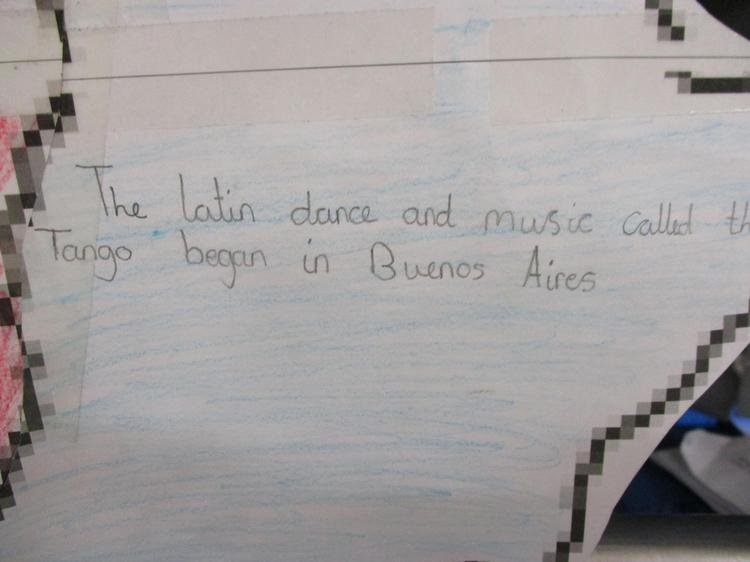 The latin dance and music called th
Tango began in Buenos Aires